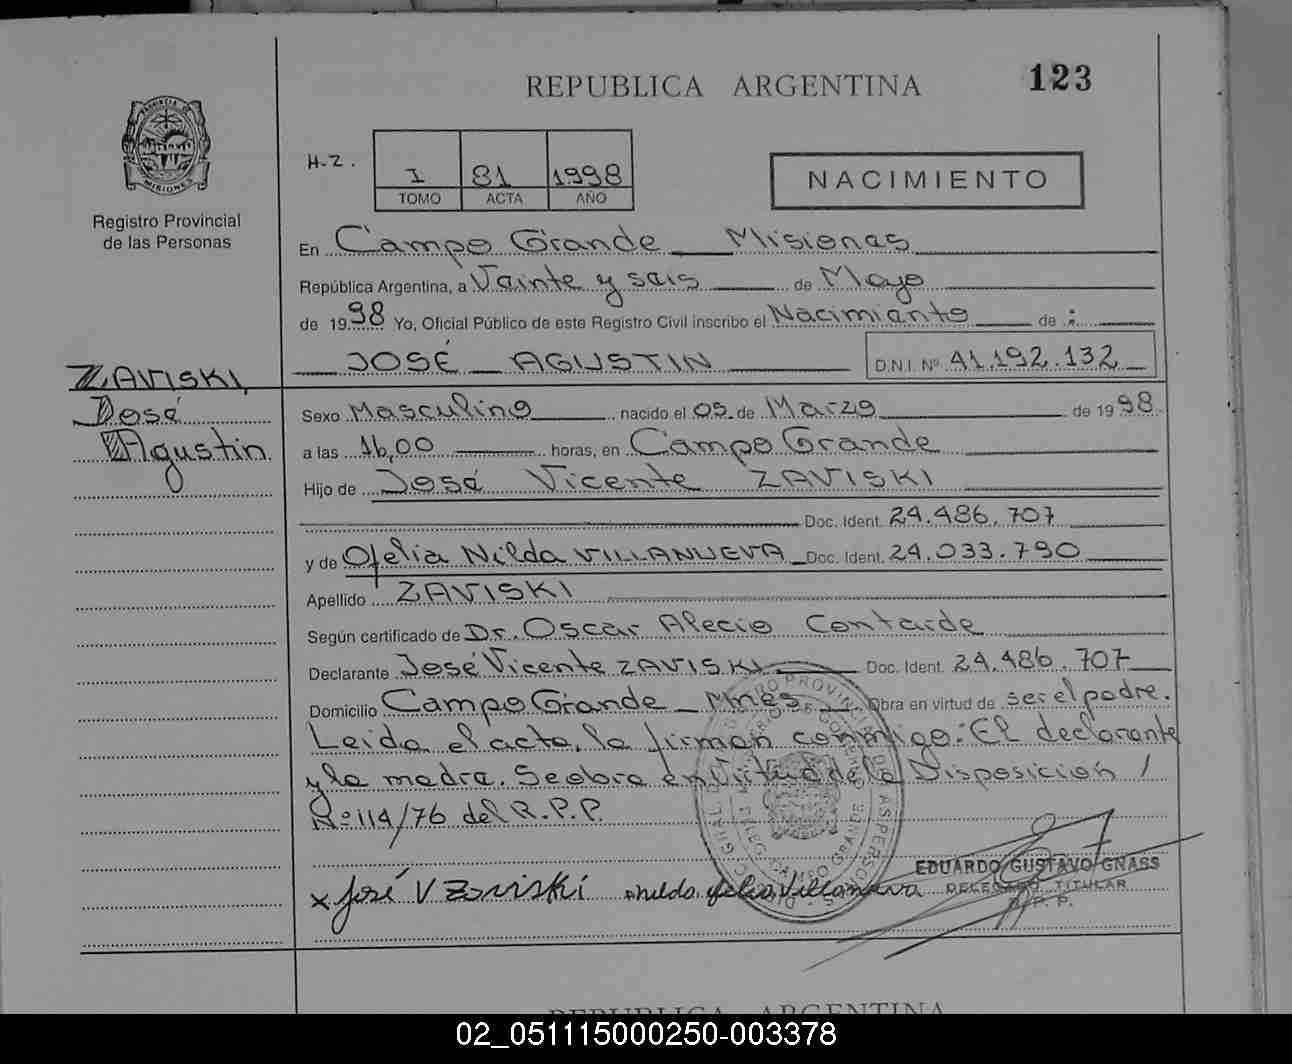 REPUBLICA ARGENTINA
123
PROVINCIA DE MISIONES
Registro Provincial
de las Personas
H-Z.
I 81 1998
TOMO ACTA AÑO
NACIMIENTO
En Campo Grande Misiones
República Argentina, a Veinte y seis de Mayo
de 1998 Yo, Oficial Público de este Registro Civil inscribo el Nacimiento de :
JOSÉ AGUSTIN D.N.I. Nº 41.192.132
ZAVISKI,
José
Agustin
Sexo Masculino nacido el 05 de Marzo de 1998
a las 16,00 horas, en Campo Grande
Hijo de José Vicente ZAVISKI
Doc. Ident. 24.486.707
y de Ofelia Nilda VILLANUEVA Doc. Ident. 24.033.790
Apellido ZAVISKI
Según certificado de Dr. Oscar Alecio Contarde
Declarante José Vicente ZAVISKI Doc. Ident. 24.486.707
Domicilio Campo Grande Mnes Obra en virtud de ser el padre.
Leida el acta, la firman conmigo: El declarante
y la madre. Se obra en virtud de la Disposición /
Nº 114/76 del R.P.P.
x José V Zaviski Nilda Ofelia Villanueva
EDUARDO GUSTAVO GNASS
DELEGADO TITULAR
R. P. P.
REPUBLICA ARGENTINA
02_051115000250-003378